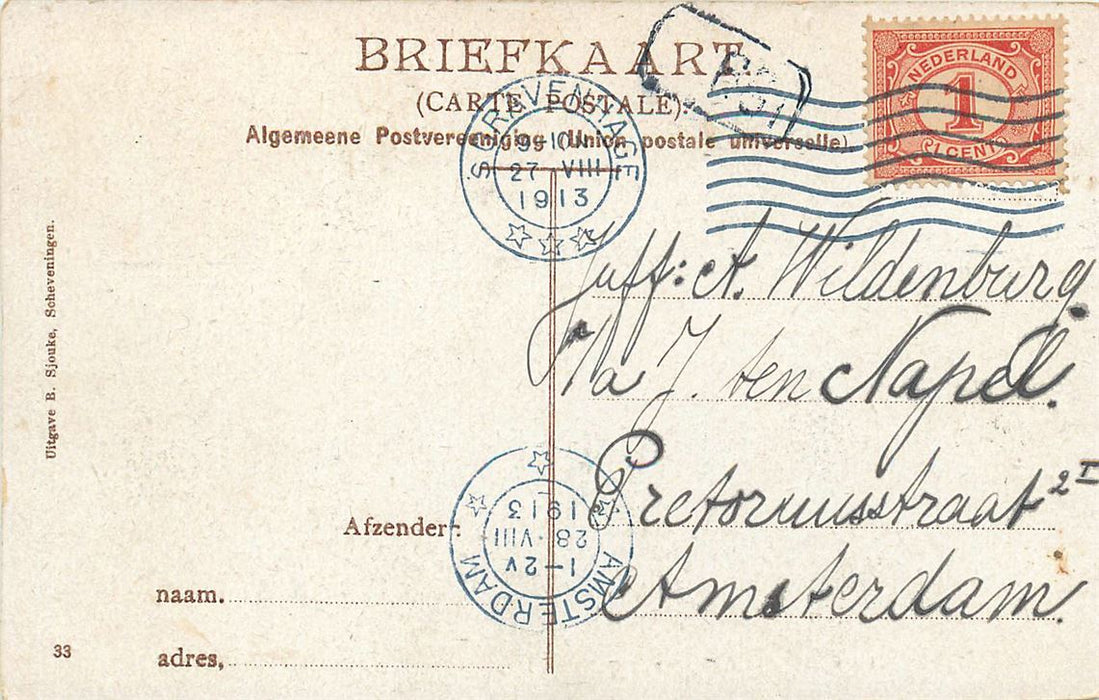 BRIEFKAART.
(CARTE POSTALE).
Algemeene Postvereeniging (Union postale universelle).
NEDERLAND
1
1 CENT
'S-GRAVENHAGE
9-10N
27 VIII
1913
Juff: A. Wildenburg.
p/a J. ten Napel.
Pretoriusstraat 2 I
Amsterdam.
Uitgave B. Sjouke, Scheveningen.
Afzender:
AMSTERDAM
1-2V
28·VIII
1913
naam.
adres,
33